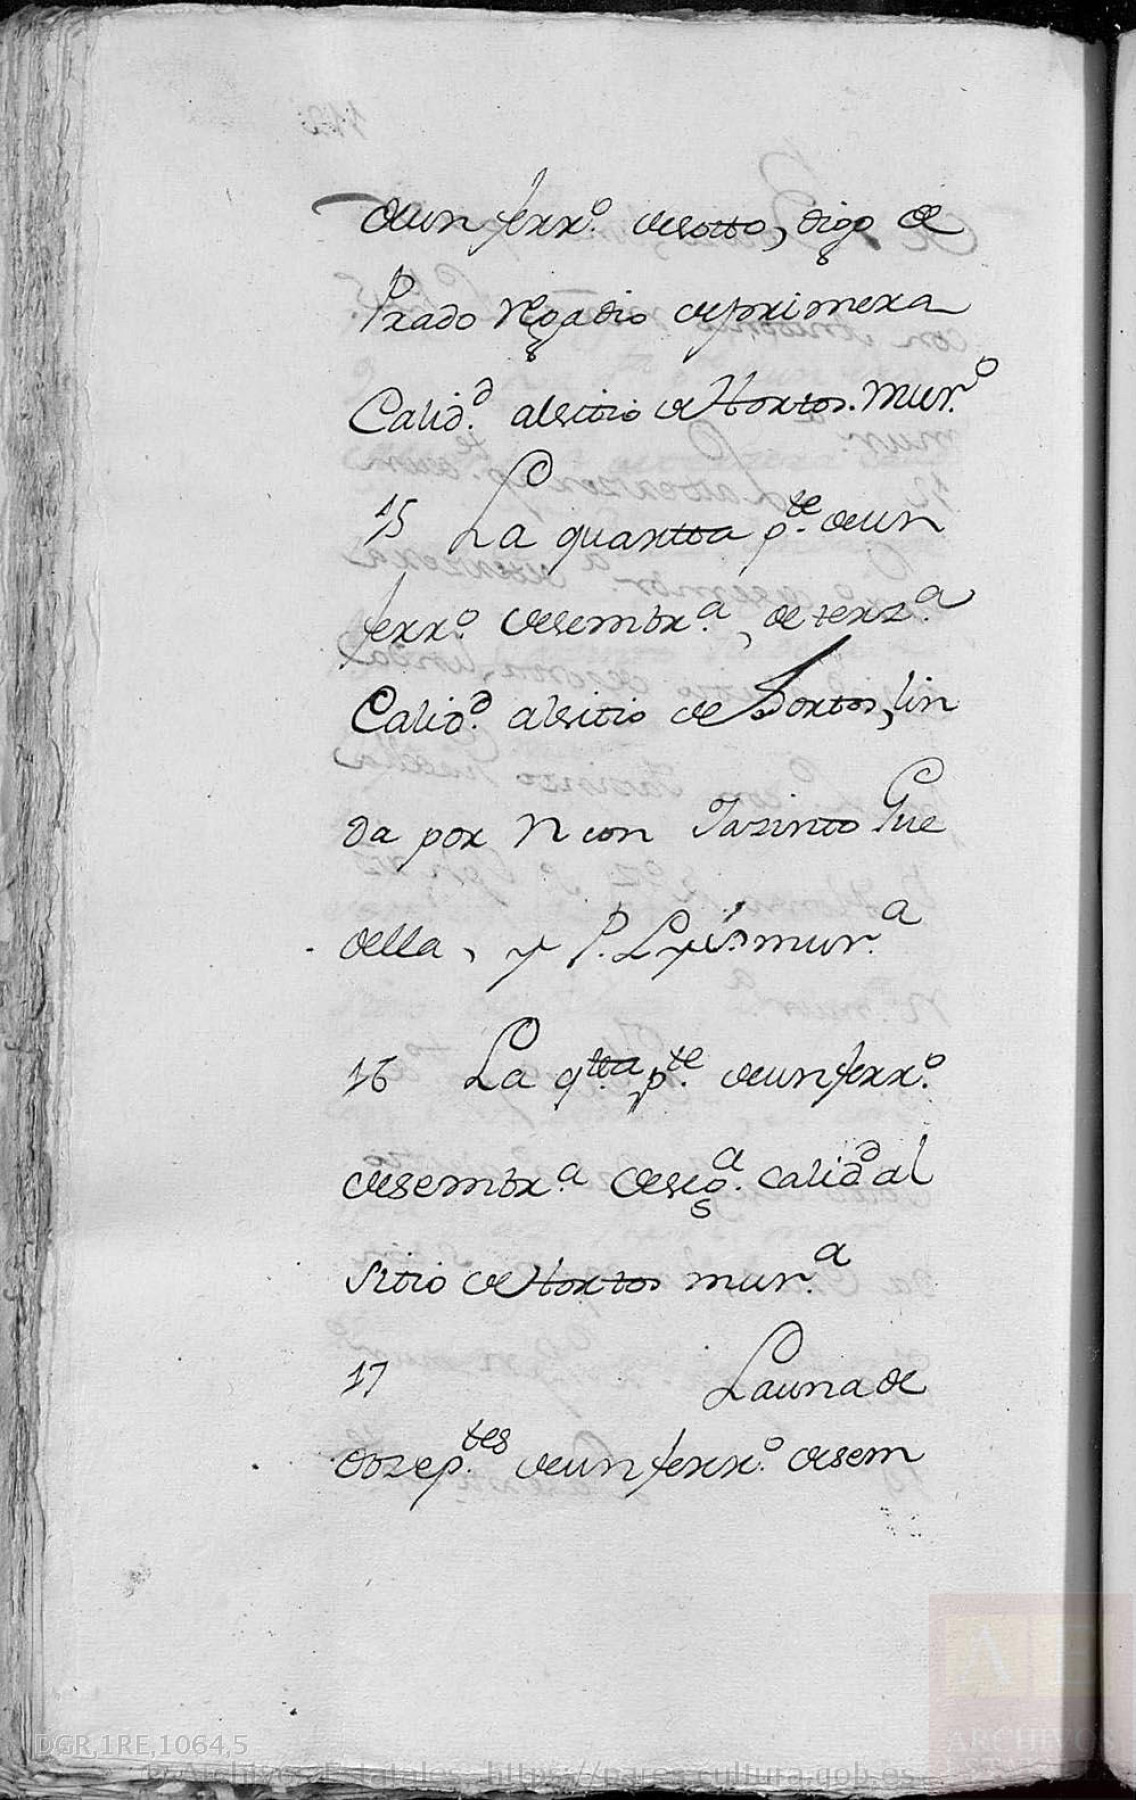 deun ferr.º desotto, digo de
Prado Regadio deprimera
Calid.d alsitio de Hortos. Mur.º
15 La quartta p.te deun
ferr.º desembr.a, de terz.a
Calid.d alsitio de Hortos, lin
da por N con Jazinto Gue
della, y P. mur.a
16 La q.tta p.te deunferr.º
desembr.a deseg.a calid.d al
sitio de Hortos mur.a
17 Launa de
dozep.tes deun ferr.º desem
DGR,1RE,1064,5
© Archivos Estatales, https://pares.cultura.gob.es
AE
ARCHIVOS
ESTATALES